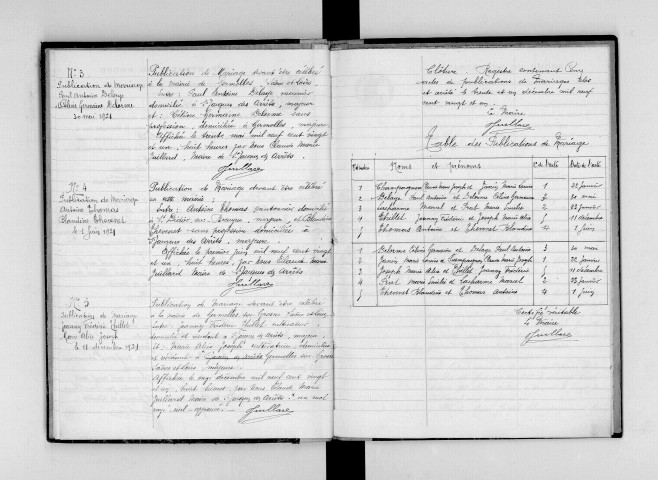 N° 3
Publication de Mariage
Paul Antoine Delaye
Céline Germaine Delorme
30 mai 1921
Publication de Mariage devant être célébré
à la mairie de Germolles, Saône et Loire,
Entre: Paul Antoine Delaye
domicilié à St Jacques des Arrêts, majeur
et: Céline Germaine Delorme sans
profession, domiciliée à Germolles, majeure
Affichée le trente mai mil neuf cent vingt
et un, huit heures, par nous Claude Marie
Guillard, Maire de St Jacques des Arrêts.
N° 4
Publication de Mariage
Antoine Thomas
Claudine Thevenet
le 1 juin 1921
Publication de Mariage devant être célébré
en mairie
Entre: Antoine Thomas domicilié
majeur, et Claudine
Thevenet sans profession domiciliée à
St Jacques des Arrêts, majeure.
Affichée le premier juin mil neuf cent vingt
et un, huit heures, par nous Claude Marie
Guillard Maire de St Jacques des Arrêts
N° 5
Publication de Mariage
Joanny Frédéric Thillet
Marie Alix Joseph
le 11 décembre 1921
Publication de Mariage devant être célébré
à la mairie de Germolles sur Grosne Saône et Loire
Entre: Joanny Frédéric Thillet cultivateur
domicilié et résidant à St Jacques des Arrêts, majeur
et: Marie Alix Joseph cultivatrice domiciliée
et résidant à Germolles sur Grosne
Saône et Loire, majeure.
Affichée le onze décembre mil neuf cent vingt
et un, huit heures, par nous Claude Marie
Guillard Maire de St Jacques des Arrêts. un mot
rayé nul
Clôture Registre contenant cinq
actes de publications de mariages clos
et arrêté le trente et un décembre mil neuf
cent vingt et un.
Le Maire
Table des Publications de Mariage
Noms et prénoms
N° de l'acte
Date de l'acte
1 Joseph et Janin Marie Louise 1 22 janvier
2 Delaye Paul Antoine et Delorme Céline Germaine 3 30 mai
3 Lacharme Marcel et Marie 2 23 janvier
4 Thillet Joanny Frédéric et Joseph Marie Alix 5 11 décembre
5 Thomas Antoine et Thevenet Claudine 4 1 juin
1 Delorme Céline Germaine et Delaye Paul Antoine 3 30 mai
2 Janin Marie Louise et Joseph 1 22 janvier
3 Joseph Marie Alix et Thillet Joanny Frédéric 5 11 décembre
4 Marie et Lacharme Marcel 2 23 janvier
5 Thevenet Claudine et Thomas Antoine 4 1 juin
Certifié véritable
Le Maire